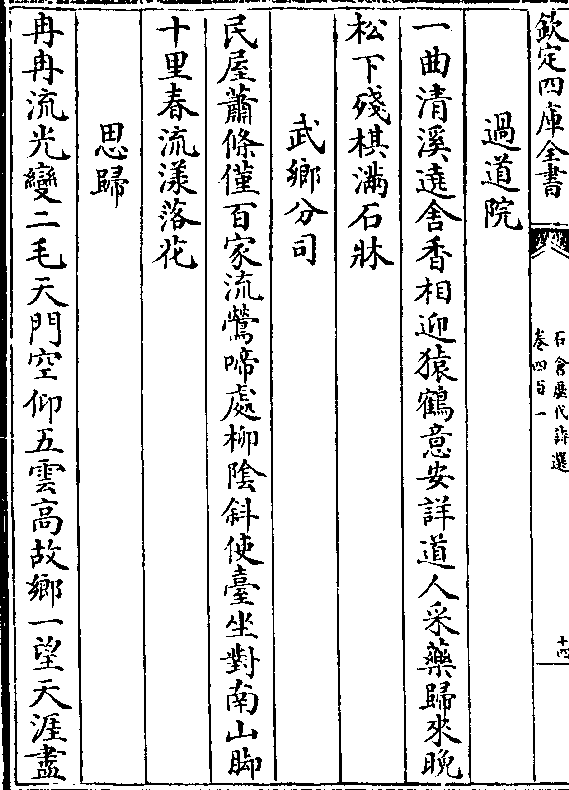 欽定四庫全書
石倉歷代詩選
卷四百一
十四
過道院
一曲清溪遶舍香相迎猿鶴意安詳道人采藥歸來晚
松下殘棋滿石牀
武鄉分司
民屋蕭條僅百家流鶯啼處柳陰斜使臺坐對南山脚
十里春流漾落花
思歸
冉冉流光變二毛天門空仰五雲高故鄉一望天涯盡